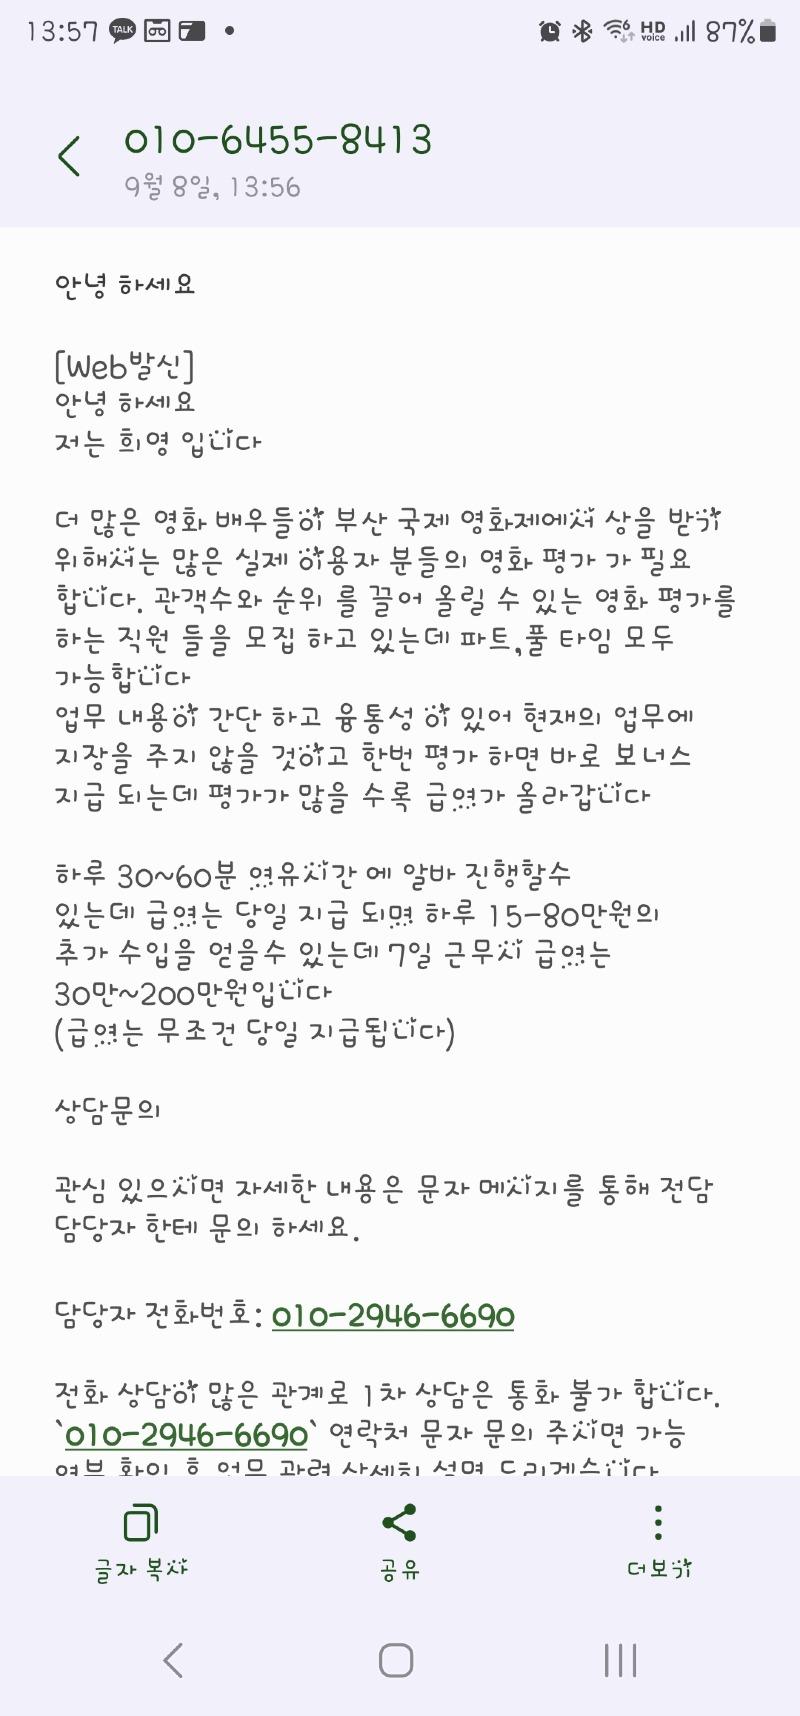 13:57 TALK 87%
HD voice
010-6455-8413
9월 8일, 13:56
안녕 하세요
[Web발신]
안녕 하세요
저는 희영 입니다
더 많은 영화 배우들이 부산 국제 영화제에서 상을 받기
위해서는 많은 실제 이용자 분들의 영화 평가 가 필요
합니다. 관객수와 순위 를 끌어 올릴 수 있는 영화 평가를
하는 직원 들을 모집 하고 있는데 파트,풀 타임 모두
가능합니다
업무 내용이 간단 하고 융통성 이 있어 현재의 업무에
지장을 주지 않을 것이고 한번 평가 하면 바로 보너스
지급 되는데 평가가 많을 수록 급여가 올라갑니다
하루 30~60분 여유시간 에 알바 진행할수
있는데 급여는 당일 지급 되며 하루 15-80만원의
추가 수입을 얻을수 있는데 7일 근무시 급여는
30만~200만원입니다
(급여는 무조건 당일 지급됩니다)
상담문의
관심 있으시면 자세한 내용은 문자 메시지를 통해 전담
담당자 한테 문의 하세요.
담당자 전화번호: 010-2946-6690
전화 상담이 많은 관계로 1차 상담은 통화 불가 합니다.
`010-2946-6690` 연락처 문자 문의 주시면 가능
여부 확인 후 업무 관련 상세히 설명 드리겠습니다
글자 복사
공유
더보기